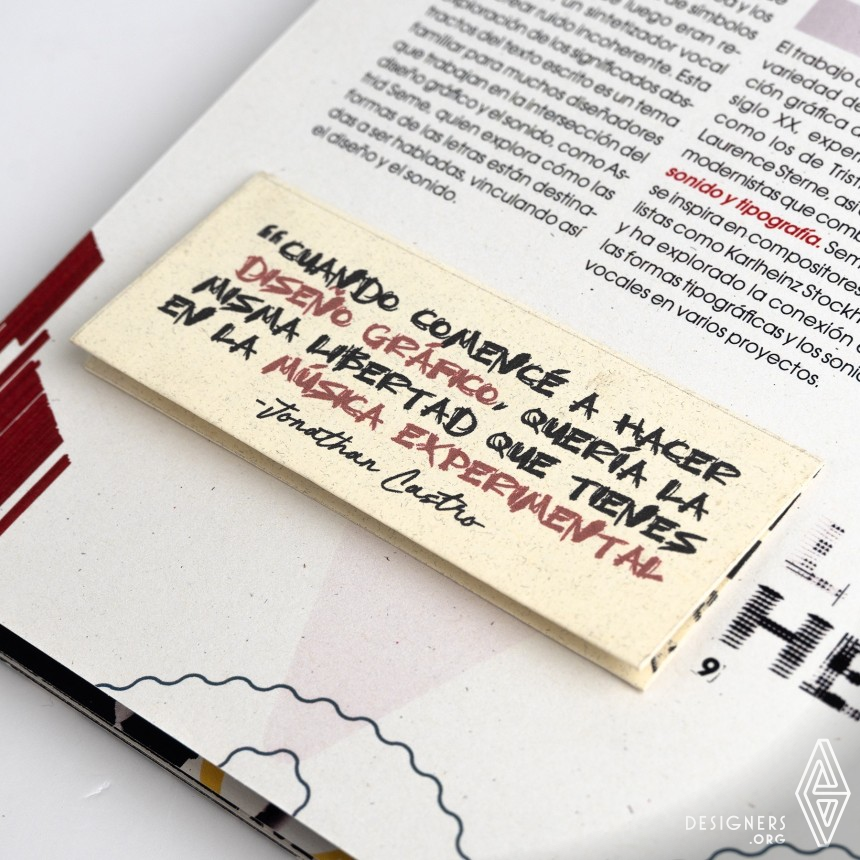 y los
de símbolos
luego eran re-
un sintetizador vocal
ruido incoherente. Esta
exploración de los significados abs-
tractos del texto escrito es un tema
familiar para muchos diseñadores
que trabajan en la intersección del
diseño gráfico y el sonido, como As-
trid Seme, quien explora cómo las
formas de las letras están destina-
das a ser habladas, vinculando así
el diseño y el sonido.
El trabajo
variedad de
ción gráfica
siglo XX, experi
como los de Trist
Laurence Sterne, así
modernistas que comb
sonido y tipografía. Sem
se inspira en compositores
listas como Karlheinz Stockh
y ha explorado la conexión
las formas tipográficas y los soni
vocales en varios proyectos.
“CUANDO COMENCÉ A HACER
DISEÑO GRÁFICO, QUERÍA LA
MISMA LIBERTAD QUE TIENES
EN LA MÚSICA EXPERIMENTAL
-Jonathan Castro
L
HE
9
DESIGNERS
.ORG